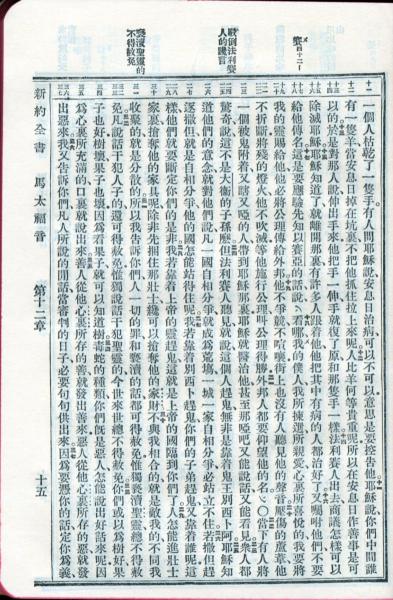 賽四十二1
駁倒法利賽
人的譏言
褻瀆聖靈的
不得赦免
一個人枯乾了一隻手有人問耶穌說安息日治病可以不可以意思是要控告他耶穌說你們中間誰
有一隻羊當安息日掉在坑裏不把他抓住拉上來呢人比羊何等貴重呢所以在安息日作善事是可
以的於是對那人說伸出手來他把手一伸手就復了原和那隻手一樣法利賽人出去商議怎樣可以
除滅耶穌耶穌知道了就離開那裏有許多人跟着他他把其中有病的人都治好了又囑咐他們不要
給他傳名這是要應驗先知以賽亞的話說看哪我的僕人我所揀選所親愛心裏所喜悅的我要將
我的靈賜給他他必將公理傳給外邦他不爭競不喧嚷街上也沒有人聽見他的聲音壓傷的蘆葦他
不折斷將殘的燈火他不吹滅等他施行公理叫公理得勝外邦人都要仰望他的名〇當下有人將
一個被鬼附着又瞎又啞的人帶到耶穌那裏耶穌就醫治他甚至那啞吧又能說話又能看見衆人都
驚奇說這不是大衛的子孫麽但法利賽人聽見就說這個人趕鬼無非是靠着鬼王別西卜阿耶穌知
道他們的意念就對他們說凡一國自相分爭就成爲荒塲一城一家自相分爭必站立不住若撒但趕
逐撒但就是自相分爭他的國怎能站得住呢我若靠着別西卜趕鬼你們的子弟趕鬼又靠着誰呢這
樣他們就要斷定你們的是非我若靠着上帝的靈趕鬼這就是上帝的國臨到你們了人怎能進壯士
家裏搶奪他的家具呢除非先捆住那壯士纔可以搶奪他的家財不與我相合的就是敵我的不同我
收聚的就是分散的所以我告訴你們人一切的罪和褻瀆的話都可得赦免惟獨褻瀆聖靈總不得赦
免凡說話干犯人子的還可得赦免惟獨說話干犯聖靈的今世來世總不得赦免你們或以爲樹好果
子也好樹壞果子也壞因爲看果子就可以知道樹毒蛇的種類你們旣是惡人怎能說出好話來呢因
爲心裏所充滿的口裏就說出來善人從他心裏所存的善就發出善來惡人從他心裏所存的惡就發
出惡來我又告訴你們凡人所說的閒話當審判的日子必要句句供出來因爲要憑你的話定你爲義
新約全書 馬太福音 第十二章 十五